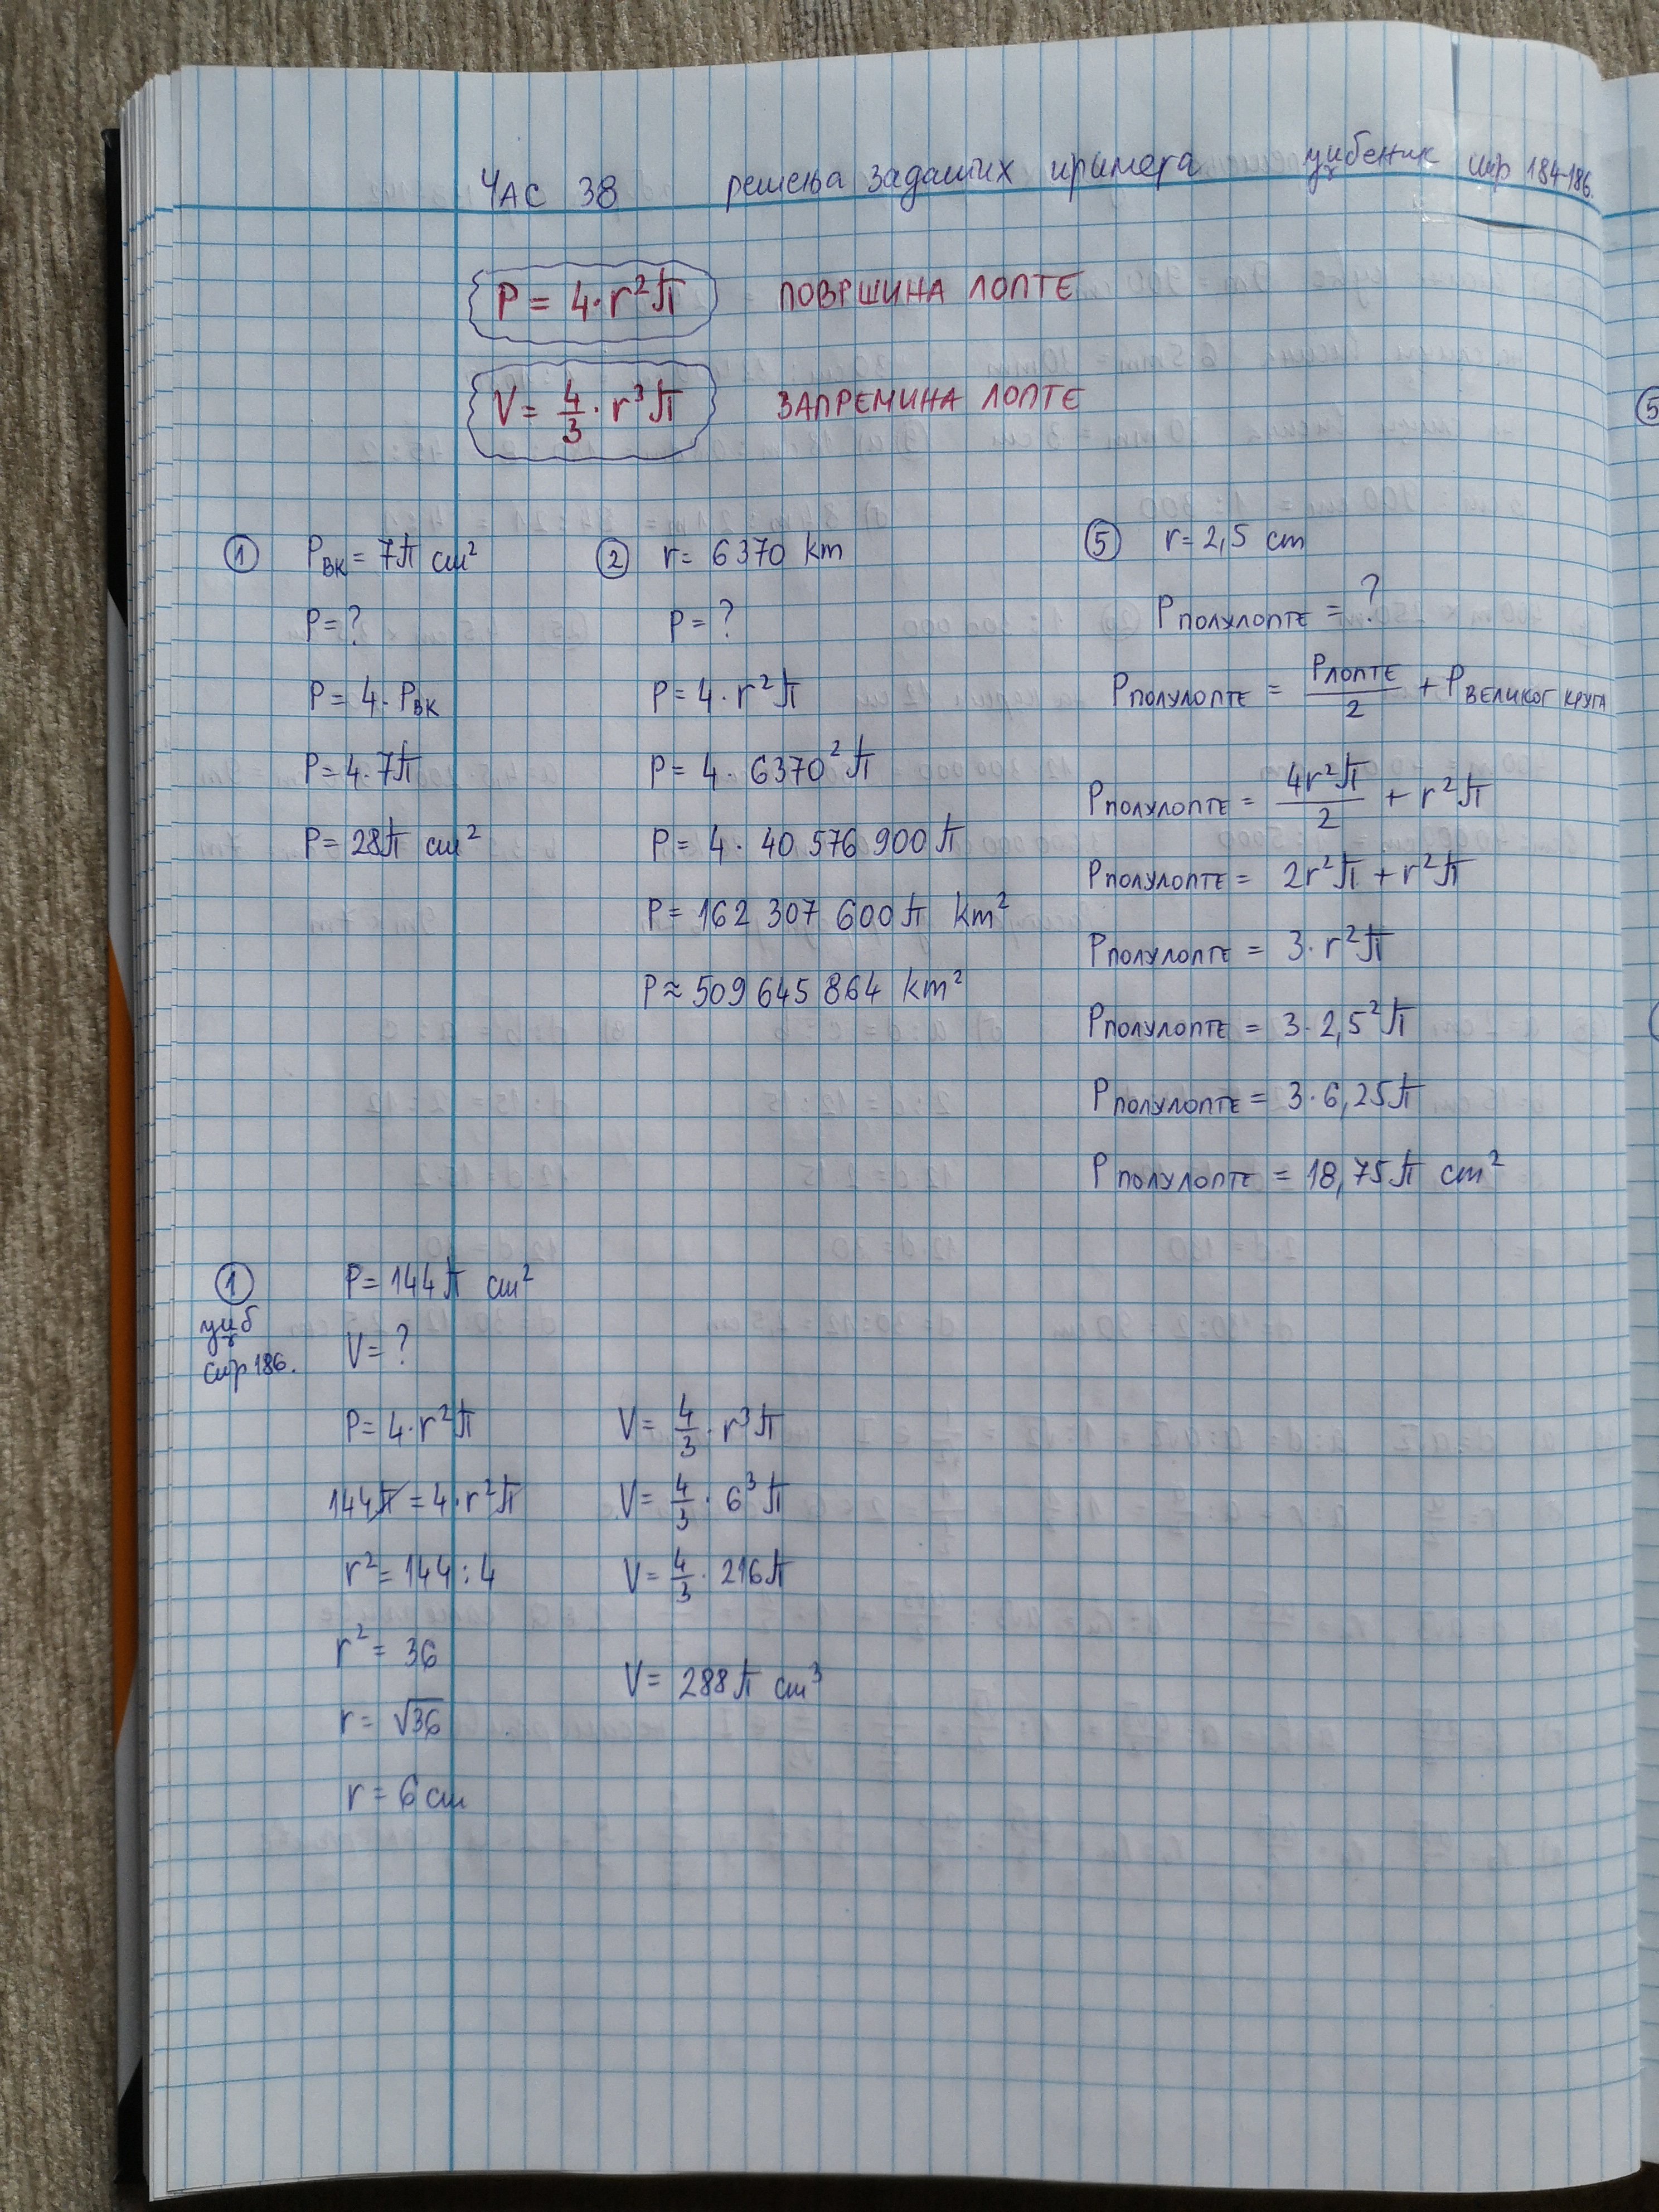 ЧАС 38 решења задатих примера уџбеник стр 184-186.
P = 4·r²π ПОВРШИНА ЛОПТЕ
V = 4/3 · r³π ЗАПРЕМИНА ЛОПТЕ
① Pвк = 7π cm²
P = ?
P = 4·Pвк
P = 4·7π
P = 28π cm²
② r = 6370 km
P = ?
P = 4·r²π
P = 4· 6370²π
P = 4· 40 576 900π
P = 162 307 600π km²
P ≈ 509 645 864 km²
⑤ r = 2,5 cm
Pполулопте = ?
Pполулопте = Pлопте/2 + Pвеликог круга
Pполулопте = 4r²π/2 + r²π
Pполулопте = 2r²π + r²π
Pполулопте = 3·r²π
Pполулопте = 3·2,5²π
Pполулопте = 3·6,25π
Pполулопте = 18,75π cm²
① P = 144π cm²
уџб
стр 186.
V = ?
P = 4·r²π
144π = 4·r²π
r² = 144 : 4
r² = 36
r = √36
r = 6 cm
V = 4/3 · r³π
V = 4/3 · 6³π
V = 4/3 · 216π
V = 288π cm³
⑤